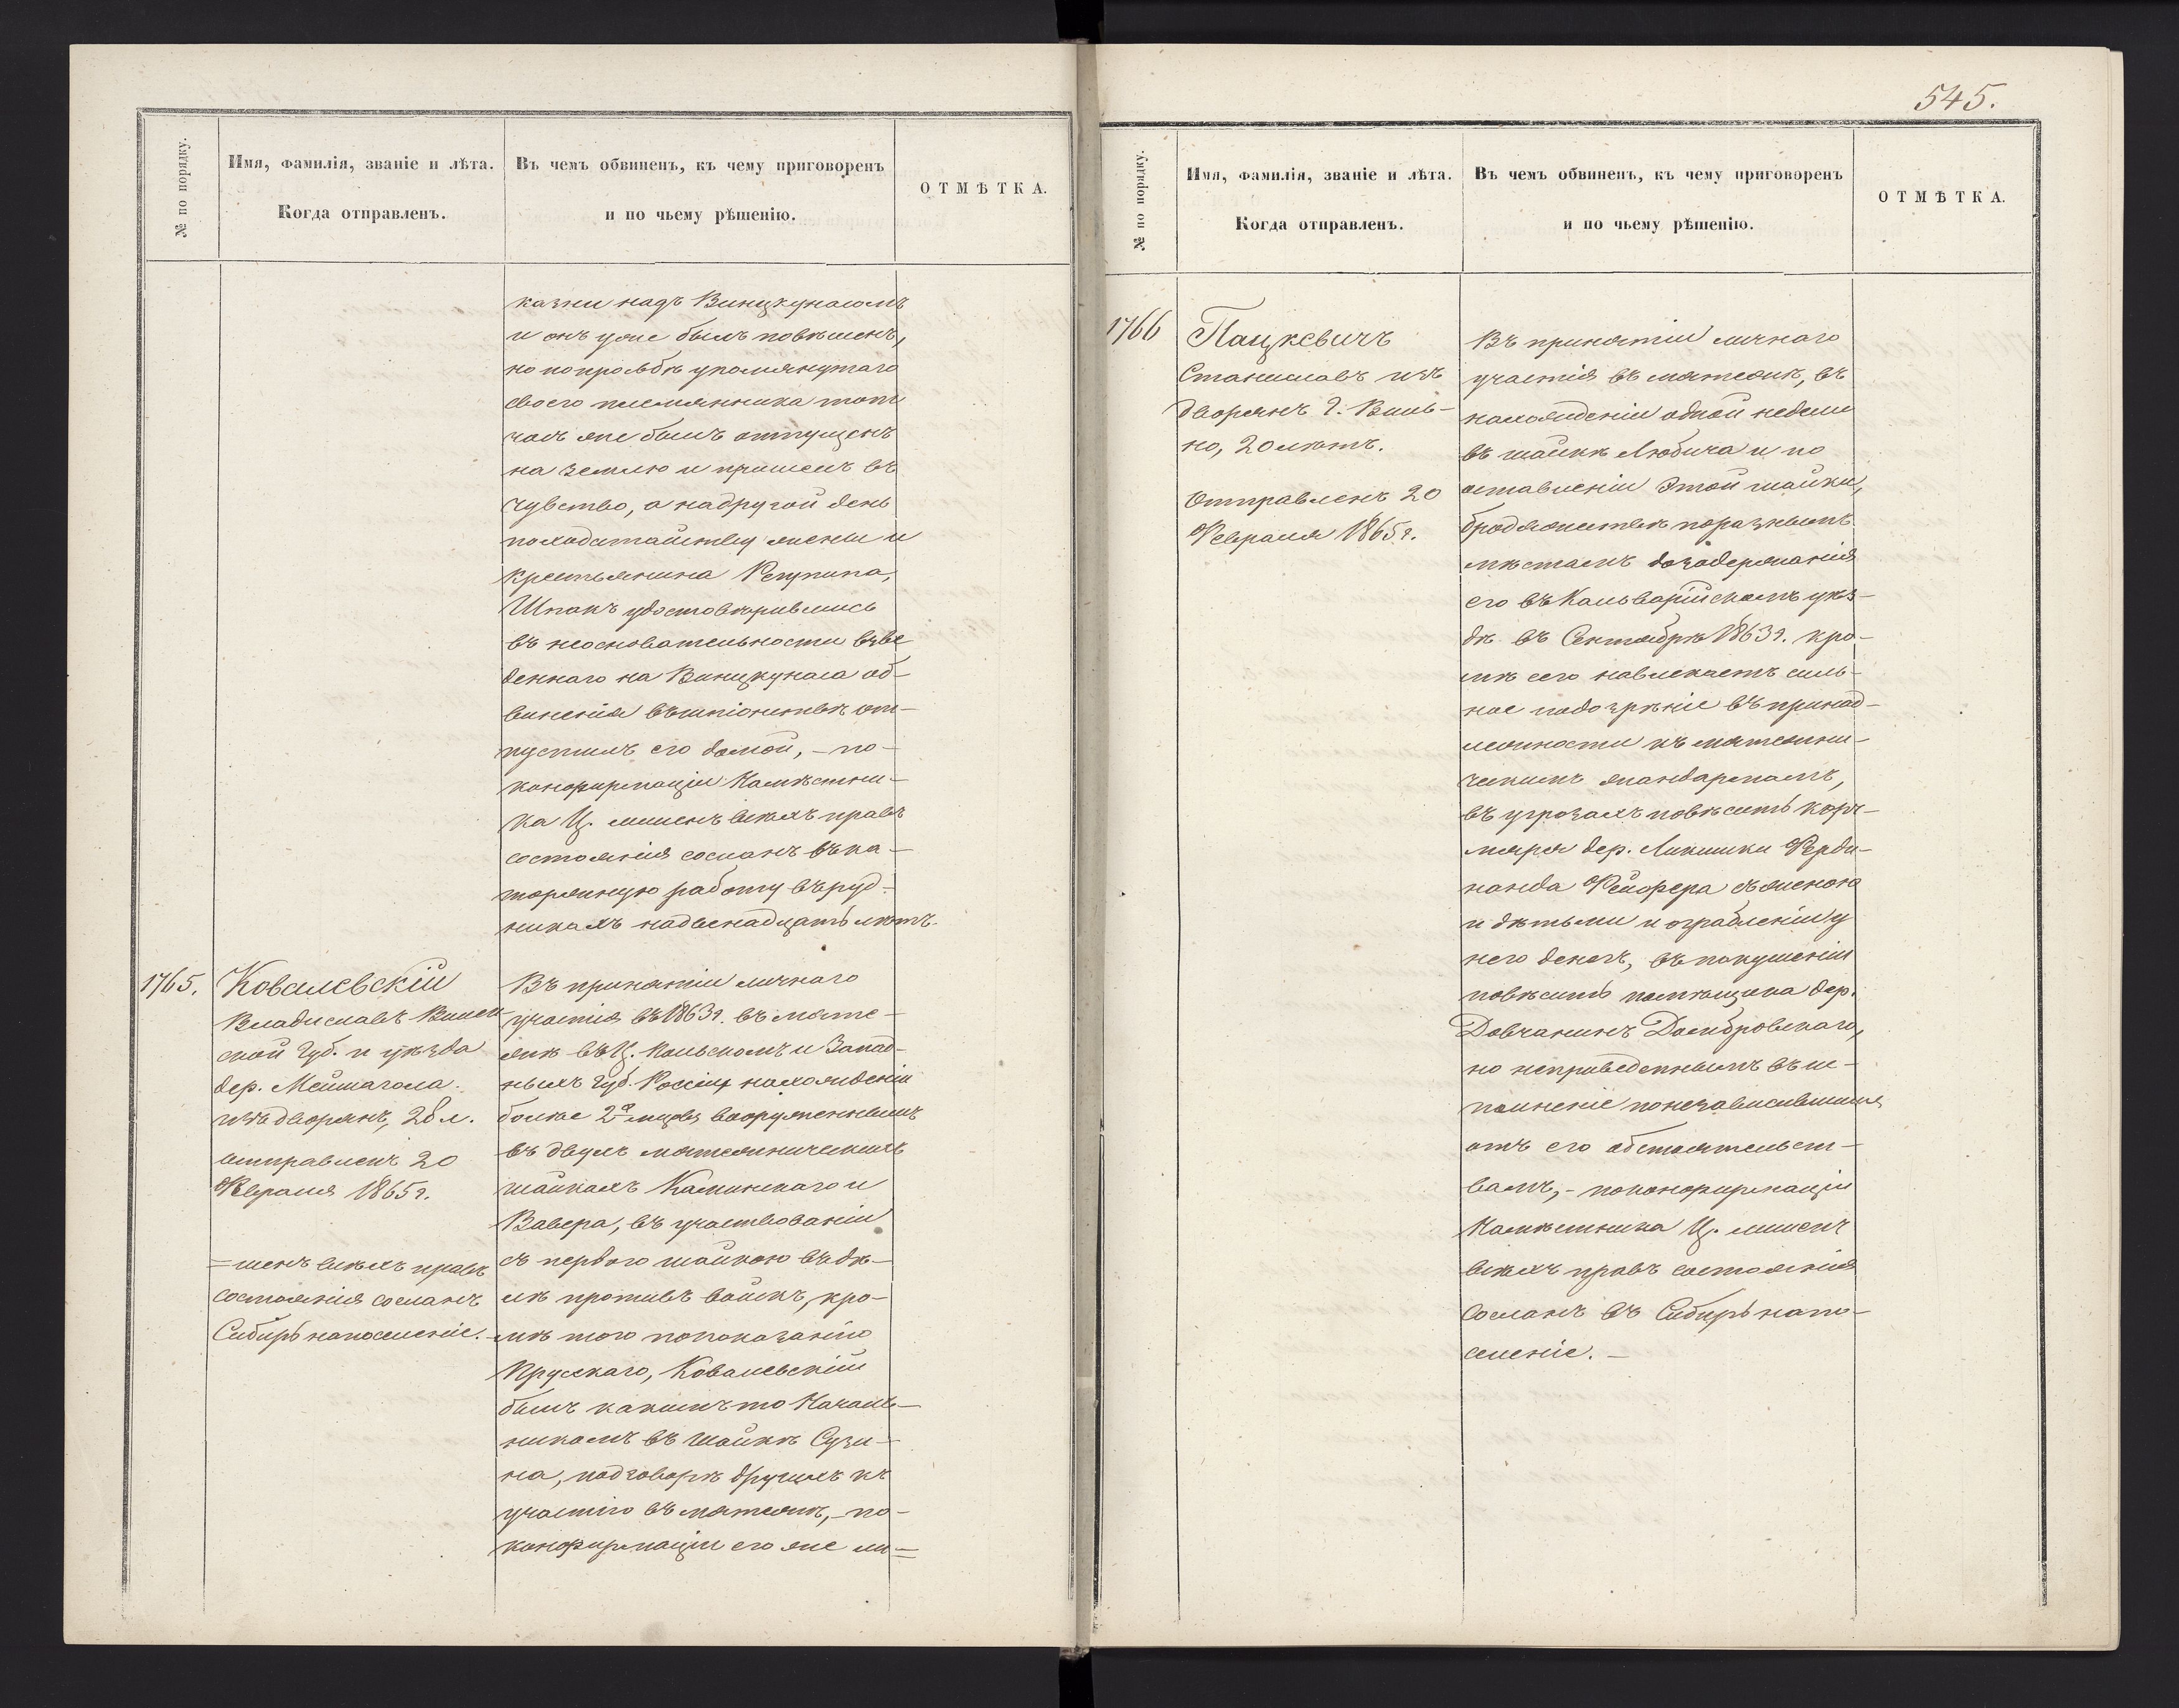 № по порядку.
Имя, фамилія, званіе и лѣта.
Когда отправленъ.
Въ чемъ обвиненъ, къ чему приговоренъ
и по чьему рѣшенію.
ОТМѢТКА.
казни надъ Винцкунасомъ
и онъ уже былъ повѣшенъ,
но по просьбѣ упомянутаго
своего племянника тот
часъ же былъ отпущенъ
на землю и пришелъ въ
чувство, а на другой день
по ходатайству жены и
крестьянина
Шпакъ удостовѣрившись
въ неосновательности взве
деннаго на Винцкунаса об-
виненія въ шпіонствѣ от-
пустилъ его домой, - по-
конфирмаціи Намѣстни-
ка Ц. лишенъ всѣхъ правъ
состоянія сосланъ въ ка-
торжную работу въ руд-
никахъ на двенадцать лѣтъ.
1765.
Ковалевскій
Владиславъ Вилен
ской Губ. и уѣзда
дер. Мейшагола.
изъ дворянъ, 28 л.
Отправленъ 20
Февраля 1865 г.
=шенъ всѣхъ правъ
состоянія сосланъ
Сибирь на поселеніе.
Въ принятіи личнаго
участія въ 1863 г. въ мяте-
жѣ въ Ц. Польскомъ и Запад-
ныхъ Губ. Россіи, нахожденіи
болѣе 2х мѣсяц. вооруженнымъ
въ двухъ мятежническихъ
шайкахъ Каминскаго и
Вавера, въ участвованіи
съ первою шайкою въ дѣ-
лѣ противъ войскъ, кро-
мѣ того по показанію
Прусскаго, Ковалевскій
былъ какимъ то Началь-
никомъ въ шайкѣ Сузи-
на, подговорѣ другихъ къ
участію въ мятежѣ, - по-
конфирмаціи его же ли=
545.
№ по порядку.
Имя, фамилія, званіе и лѣта.
Когда отправленъ.
Въ чемъ обвиненъ, къ чему приговоренъ
и по чьему рѣшенію.
ОТМѢТКА.
1766
Пацкевичъ
Станиславъ изъ
дворянъ г. Виль-
но, 20 лѣтъ.
Отправленъ 20
Февраля 1865 г.
Въ принятіи личнаго
участія въ мятежѣ, въ
нахожденіи одной недели
въ шайкѣ Любича и по
оставленіи этой шайки,
бродяжествѣ по разнымъ
мѣстамъ до задержанія
его въ Кальварійскомъ уѣз-
дѣ въ Сентябрѣ 1863 г. кро-
мѣ сего навлекаетъ силь-
ное подозрѣніе въ принад-
лежности къ мятежни-
ческимъ жандармамъ,
въ угрозахъ повѣсить корч-
маря дер. Ликишки Ферди-
нанда Фейфера съ женою
и дѣтьми и ограбленіи у
него денегъ, въ покушеніи
повѣсить помѣщика дер.
Довчанинъ Домбровскаго,
но неприведеннымъ въ ис-
полненіе по независившимъ
отъ его обстоятельст-
вамъ, - по конфирмаціи
Намѣстника Ц. лишенъ
всѣхъ правъ состоянія
сосланъ въ Сибирь на по-
селеніе. -